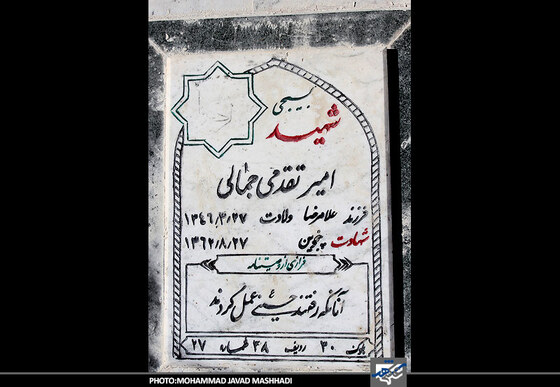 بسیجی
شهید
امیر تقدمی جمالی
فرزند غلامرضا ولادت ۱۳۴۶/۳/۲۷
شهادت پنجوین ۱۳۶۲/۸/۲۷
فرازی از وصیتنامه
آنانکه رفتند حسینی عمل کردند
بلوک ۳۰ ردیف ۴۸ شماره ۲۷
PHOTO:MOHAMMAD JAVAD MASHHADI